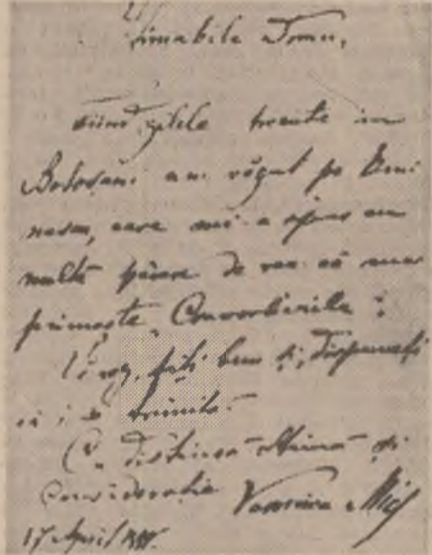 Stimabile Domn,
Fiind zilele trecute in
Botoșani am văzut pe Emi
nescu, care mi-a spus cu
multă părere de rău că nu
primește "Convorbirile";
Vă rog, fiți bun și dispuneți
să i se trimită.
Cu distinsă stimă și
considerație Veronica Micle
17 April